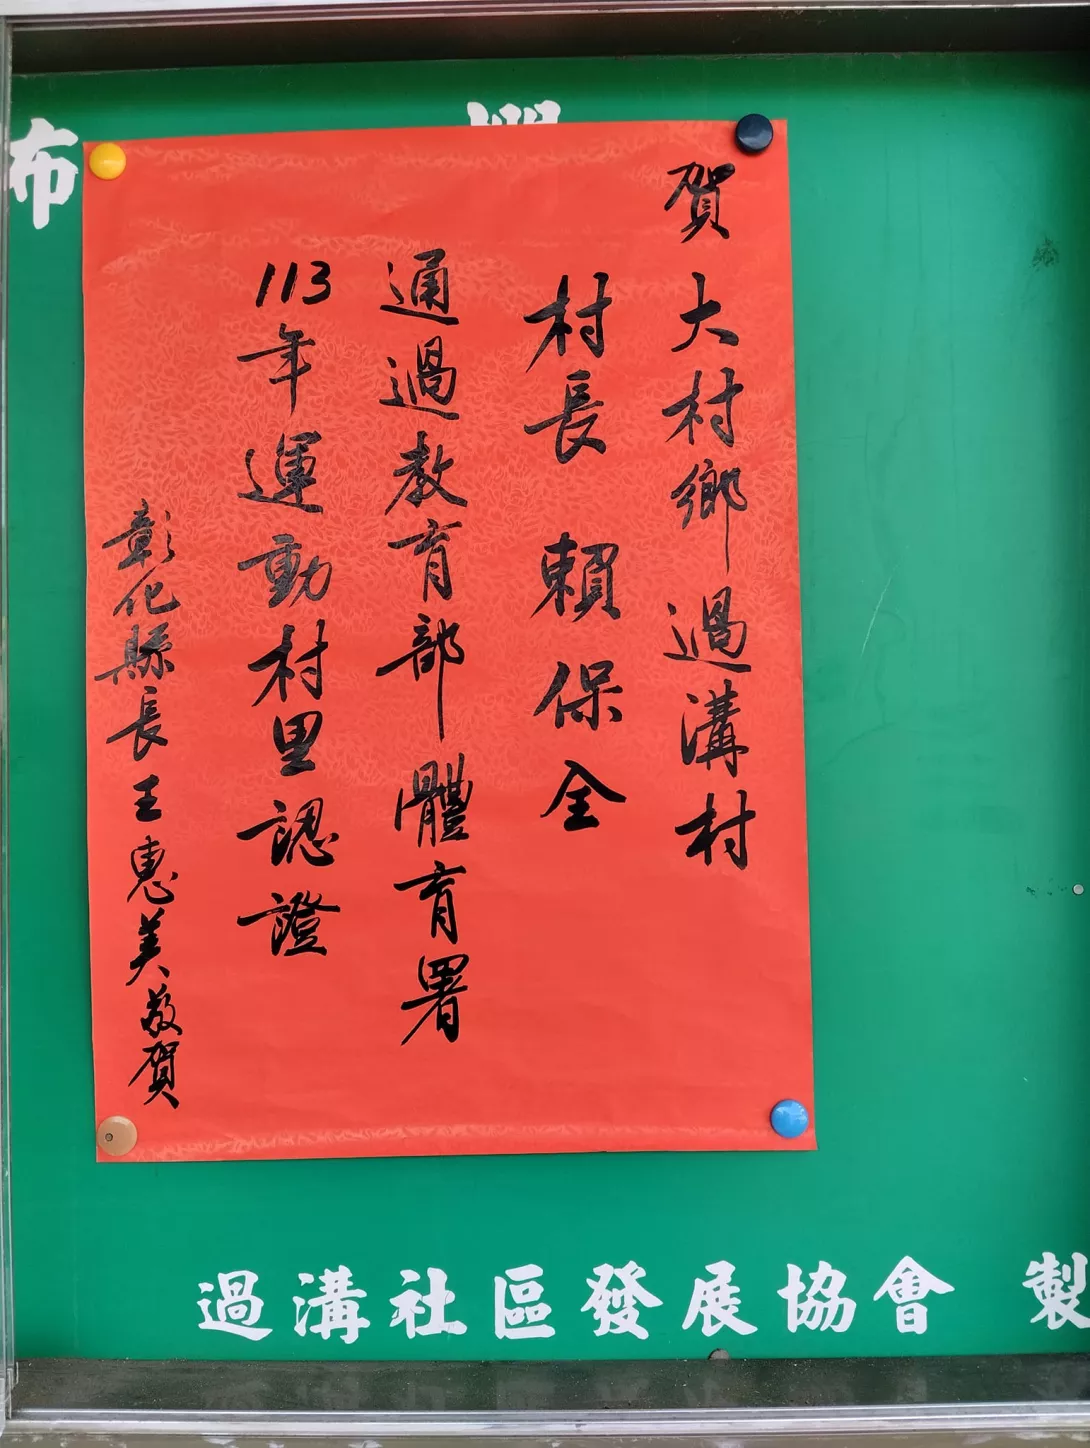 布
賀 大村鄉過溝村
村長 賴保全
通過教育部體育署
113年運動村里認證
彰化縣長王惠美敬賀
過溝社區發展協會 製